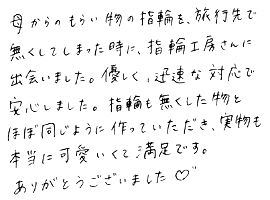 母からのもらい物の指輪を、旅行先で
無くしてしまった時に、指輪工房さんに
出会いました。優しく、迅速な対応で
安心しました。指輪も無くした物と
ほぼ同じように作っていただき、実物も
本当に可愛いくて満足です。
ありがとうございました♡